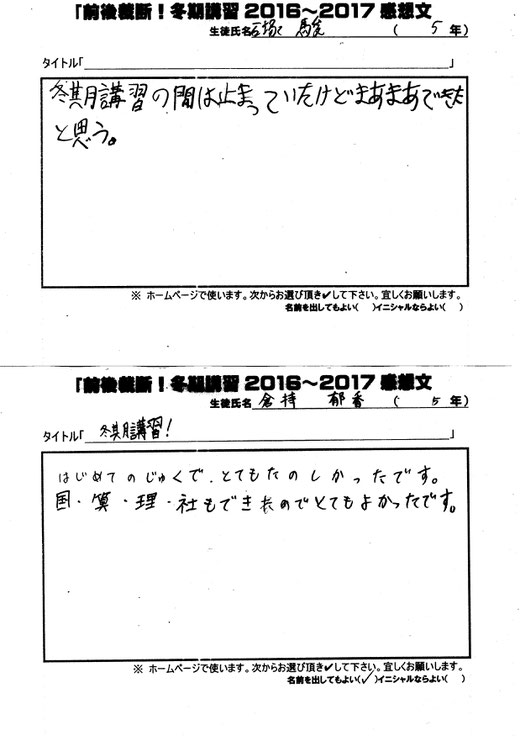 「前後裁断！冬期講習2016～2017感想文
生徒氏名 石塚 駿 （ 5 年）
タイトル「 」
冬期講習の間は止まっていたけどまあまあできた
と思う。
※ ホームページで使います。次からお選び頂き✔して下さい。宜しくお願いします。
名前を出してもよい（ ）イニシャルならよい（ ）
「前後裁断！冬期講習2016～2017感想文
生徒氏名 倉持 郁香 （ 5 年）
タイトル「 冬期講習！ 」
はじめてのじゅくで、とてもたのしかったです。
国・算・理・社もできたのでとてもよかったです。
※ ホームページで使います。次からお選び頂き✔して下さい。宜しくお願いします。
名前を出してもよい（✓）イニシャルならよい（ ）